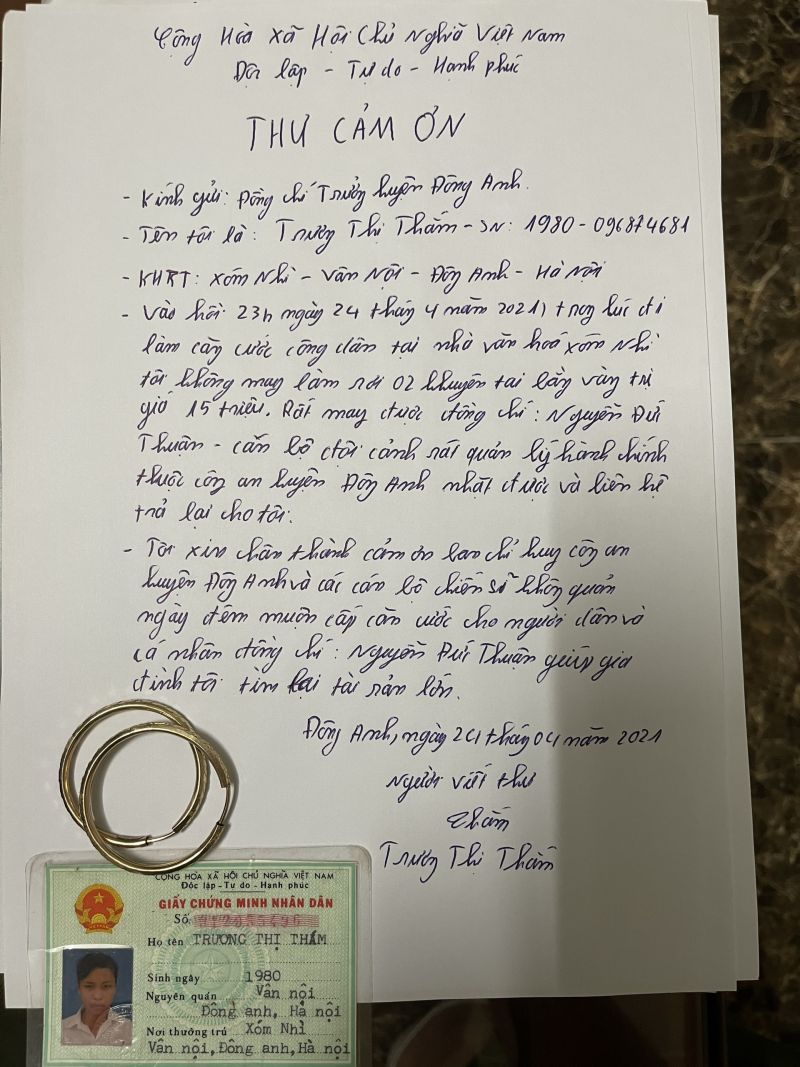 Cộng Hòa Xã Hội Chủ Nghĩa Việt Nam
Độc lập - Tự do - Hạnh phúc
THƯ CẢM ƠN
- Kính gửi: Đồng chí Trưởng huyện Đông Anh.
- Tên tôi là: Trương Thị Thắm - SN: 1980 - 096874681
- KHRT: xóm Nhì - Vân Nội - Đông Anh - Hà Nội
- Vào hồi 23h ngày 24 tháng 4 năm 2021, trong lúc đi
làm căn cước công dân tại nhà văn hoá xóm Nhì
tôi không may làm rơi 02 khuyên tai bằng vàng trị
giá 15 triệu. Rất may được đồng chí: Nguyễn Đức
Thuận - cán bộ đội cảnh sát quản lý hành chính
thuộc công an huyện Đông Anh nhặt được và liên hệ
trả lại cho tôi.
- Tôi xin chân thành cảm ơn ban chỉ huy công an
huyện Đông Anh và các cán bộ chiến sĩ không quản
ngày đêm muộn cấp căn cước cho người dân và
cá nhân đồng chí: Nguyễn Đức Thuận giúp gia
đình tôi tìm lại tài sản lớn.
Đông Anh, ngày 24 tháng 04 năm 2021
Người viết thư
Thắm
Trương Thị Thắm
CỘNG HÒA XÃ HỘI CHỦ NGHĨA VIỆT NAM
Độc lập - Tự do - Hạnh phúc
GIẤY CHỨNG MINH NHÂN DÂN
Số
Họ tên TRƯƠNG THỊ THẮM
Sinh ngày 1980
Nguyên quán Vân nội
Đông anh, Hà nội
Nơi thường trú Xóm Nhì
Vân nội, Đông anh, Hà nội